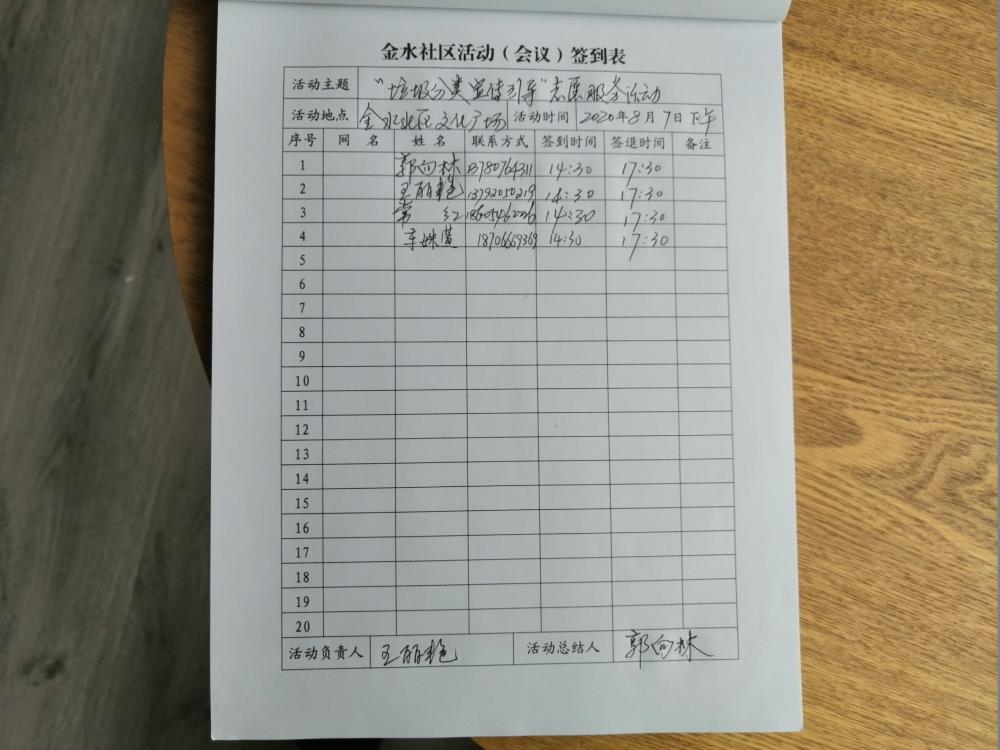 金水社区活动（会议）签到表
活动主题 “垃圾分类宣传引导”志愿服务活动
活动地点 金水社区文化广场 活动时间 2020年8月7日下午
序号 网名 姓名 联系方式 签到时间 签退时间 备注
1 郭向林 13780764311 14:30 17:30
2 王丽艳 13792050219 14:30 17:30
3 常红 14:30 17:30
4 车姝萱 18706669369 14:30 17:30
5
6
7
8
9
10
11
12
13
14
15
16
17
18
19
20
活动负责人 王丽艳 活动总结人 郭向林